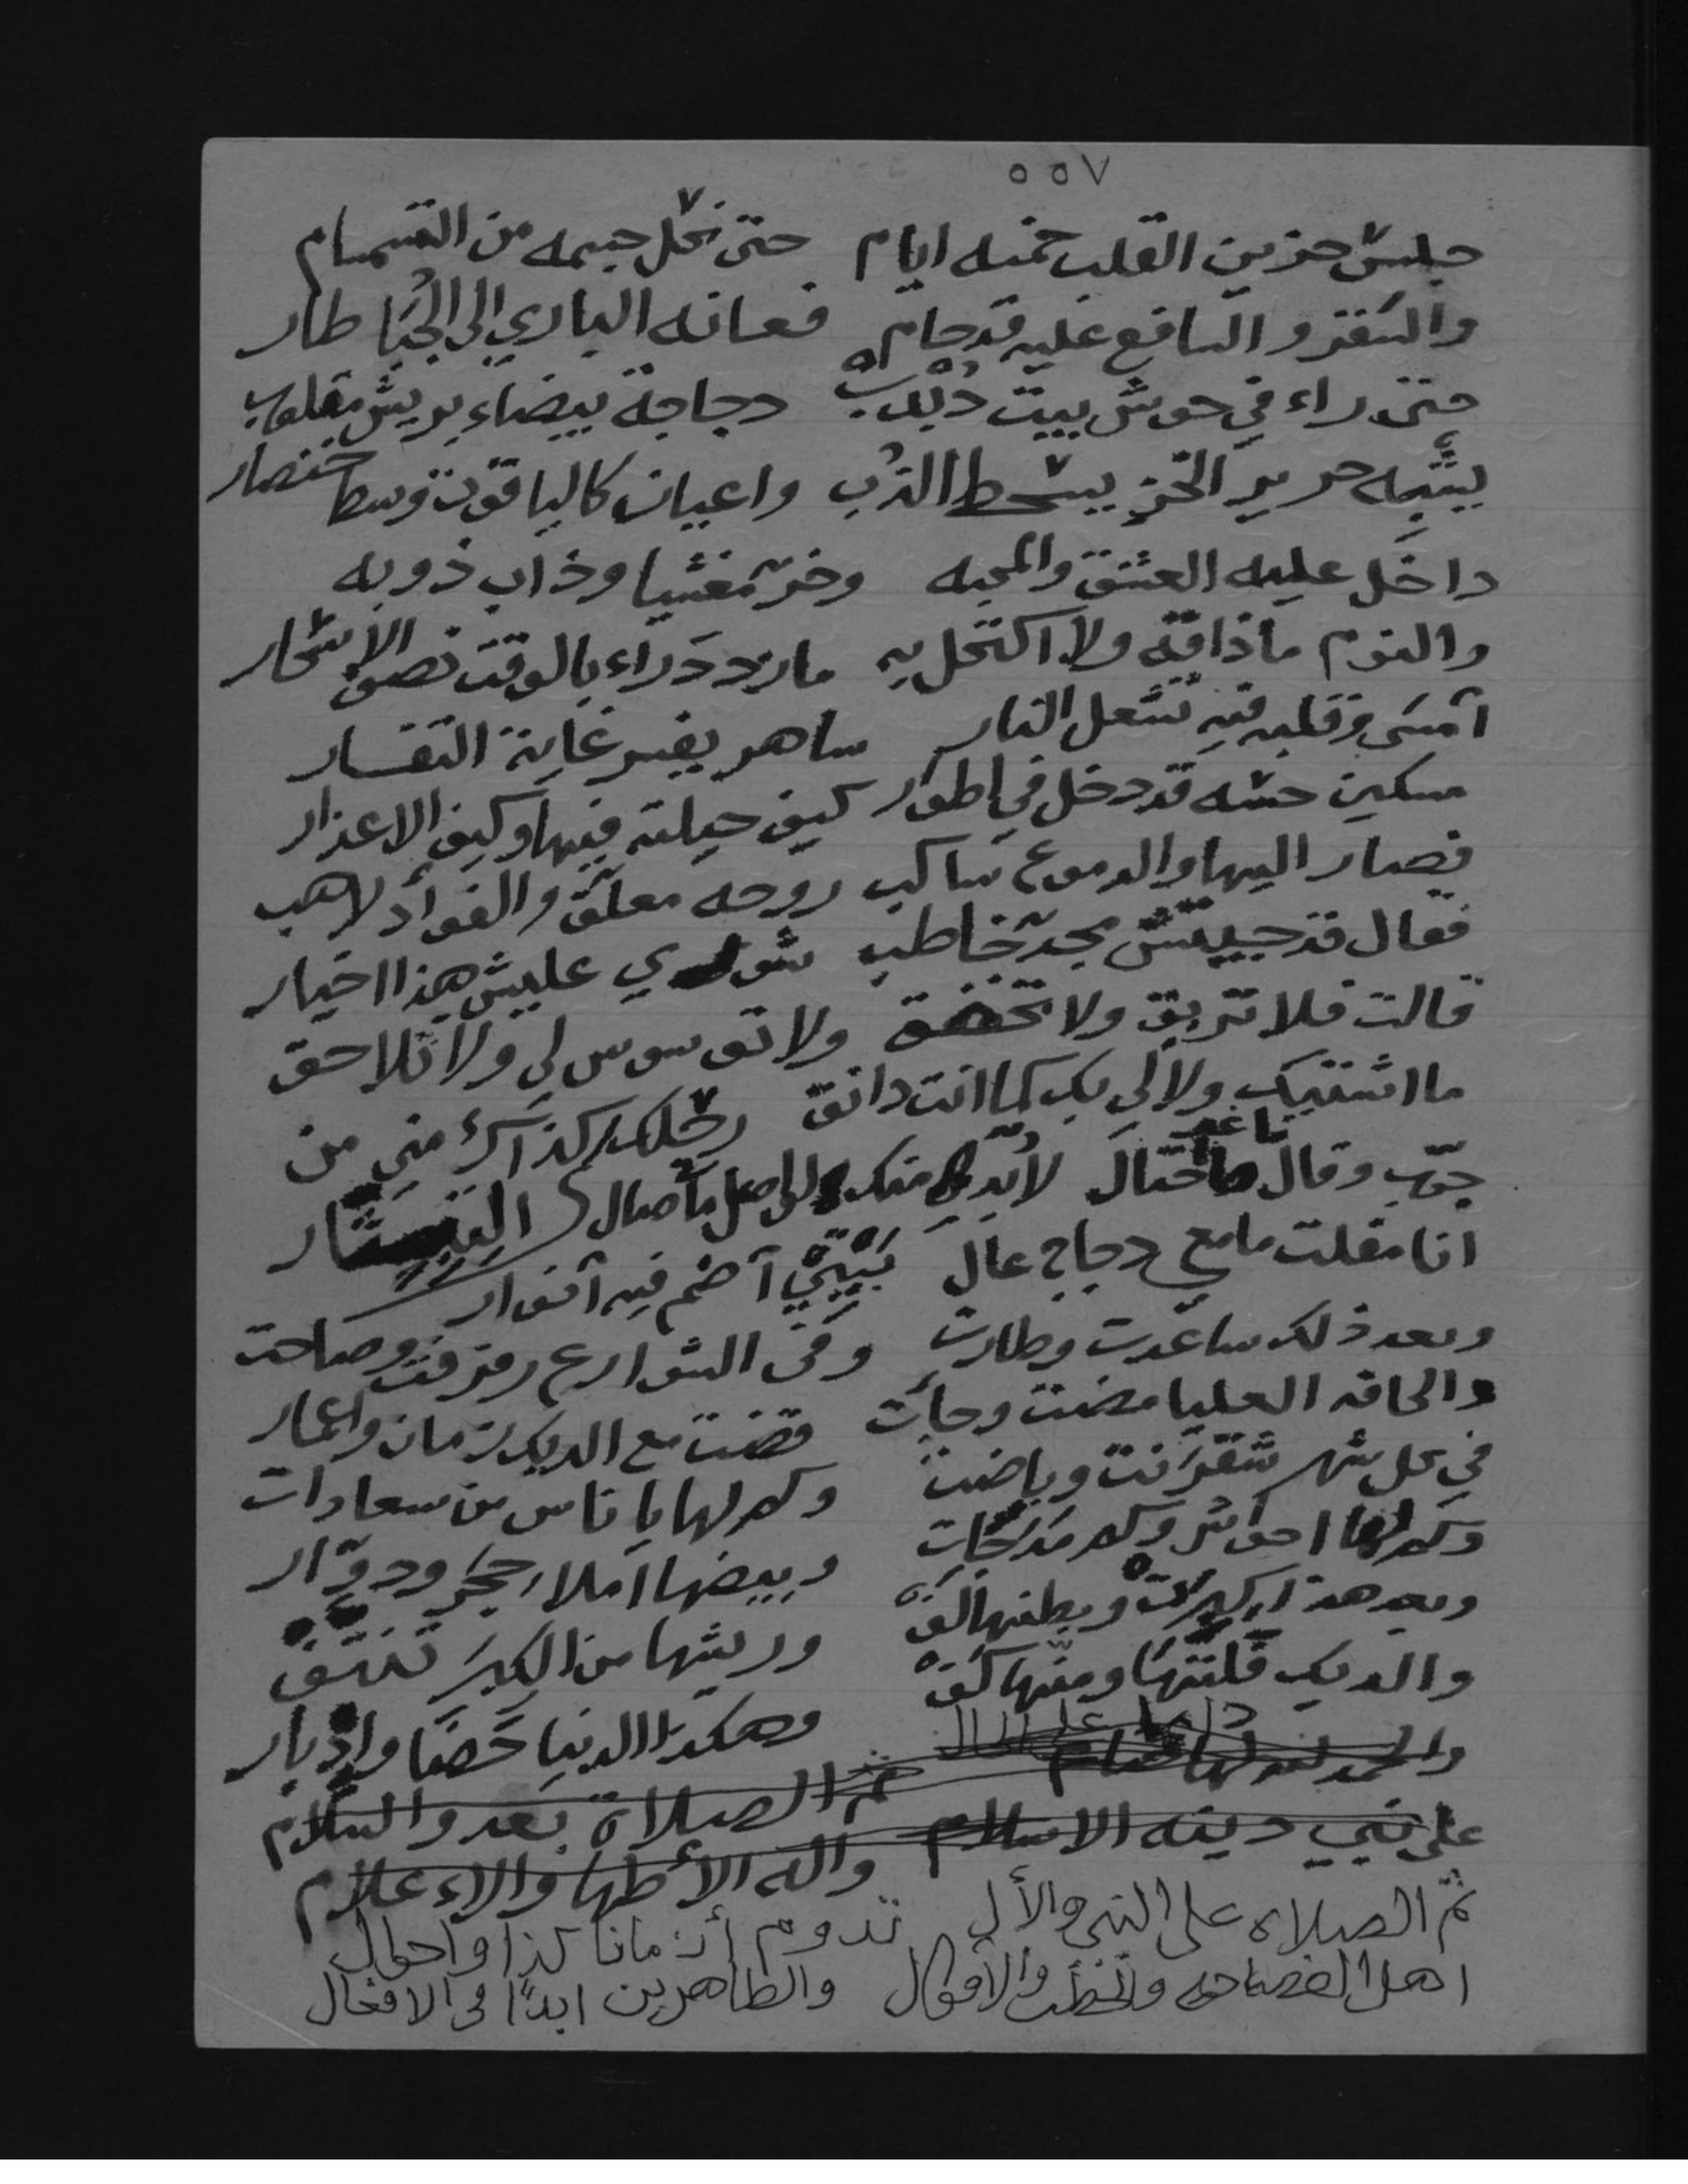 ٥٥٧
جلس حزين القلب خمسه ايام حتى نحل جسمه من التسمسام
والنقز والساقع عليه قد حام فعانه الباري الى الجبا طار
حتى راء في حوش بيت دبب دجاجة بيضاء بريش مقلوب
يشبه حرير الخز يسحط الدرب واعيان كالياقوت وسط
داخل عليه العشق والمحبه وخر مغشيا وذاب ذوبه
والنوم ماذاقه ولا اكتحل به مارد دراء بالوقت نصف الاسحار
آمسى وقلبه فيه تشعل النار ساهر يفسر غاية التفسار
مسكين حسه قد دخل في اطوار كيف حيلته فيها وكيف الاعذار
فصار اليها والدموع ساكب روحه معلق والفواد لاهب
فقال قد جيتش مجد خاطب شوري عليش هذا اختيار
قالت فلا تربق ولا ولا توسوس لي ولا تلاحق
ما اشتيك ولا لي بك كما انت دانق من
جوب وقال لابد لي منك
انا مقلت مامع دجاج عال آضم فيه آنوار
وبعد ذلك ساعدت وطارت وفى الشوارع رفرفت وصاحت
والحافه العليا مضت وجأت قضت مع الديك زمان واعمار
في كل شهر شقرنت وباضت وكم لها يا ناس من سعادات
وكم لها احواش وكم مدرجات وبيضها املا حجر ودوار
وبعد هذا كبرت وبطنها الف وريشها من الكبر تنتف
والديك فلتها ومنها كف وهكذا الدنيا حضا وادبار
والحمد لله
ثم الصلاة بعد والسلام
على نبي دينه الاسلام واله الأطها والاء علام
ثم الصلاه على النبي والأل تدوم أزمانا كذا واحوال
اهل الفصاحه والخطب والأقوال والطاهرين ابدا في الافعال